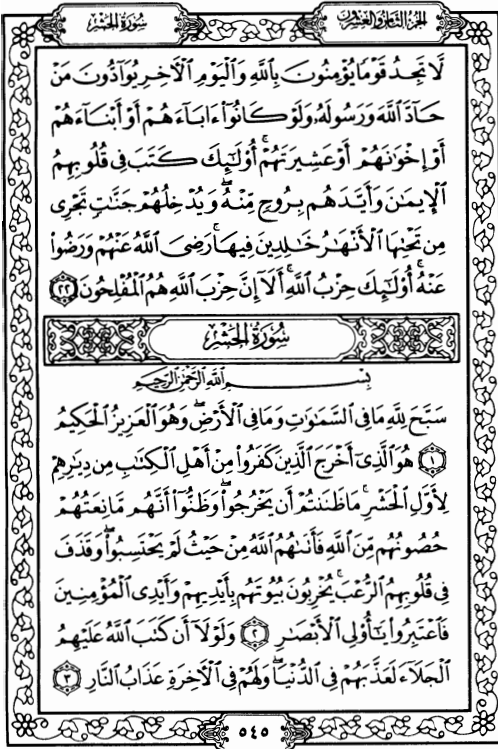 سُورَةُ الحَشْرِ
الجزء الثامن والعشرون
لَّا تَجِدُ قَوْمًا يُؤْمِنُونَ بِٱللَّهِ وَٱلْيَوْمِ ٱلْءَاخِرِ يُوَآدُّونَ مَنْ
حَآدَّ ٱللَّهَ وَرَسُولَهُۥ وَلَوْ كَانُوٓا۟ ءَابَآءَهُمْ أَوْ أَبْنَآءَهُمْ
أَوْ إِخْوَٰنَهُمْ أَوْ عَشِيرَتَهُمْ ۚ أُو۟لَـٰٓئِكَ كَتَبَ فِى قُلُوبِهِمُ
ٱلْإِيمَـٰنَ وَأَيَّدَهُم بِرُوحٍ مِّنْهُ ۖ وَيُدْخِلُهُمْ جَنَّـٰتٍ تَجْرِى
مِن تَحْتِهَا ٱلْأَنْهَـٰرُ خَـٰلِدِينَ فِيهَا ۚ رَضِىَ ٱللَّهُ عَنْهُمْ وَرَضُوا۟
عَنْهُ ۚ أُو۟لَـٰٓئِكَ حِزْبُ ٱللَّهِ ۚ أَلَآ إِنَّ حِزْبَ ٱللَّهِ هُمُ ٱلْمُفْلِحُونَ ٢٢
سُورَةُ الحَشْرِ
بِسْمِ ٱللَّهِ ٱلرَّحْمَـٰنِ ٱلرَّحِيمِ
سَبَّحَ لِلَّهِ مَا فِى ٱلسَّمَـٰوَٰتِ وَمَا فِى ٱلْأَرْضِ ۖ وَهُوَ ٱلْعَزِيزُ ٱلْحَكِيمُ
١ هُوَ ٱلَّذِىٓ أَخْرَجَ ٱلَّذِينَ كَفَرُوا۟ مِنْ أَهْلِ ٱلْكِتَـٰبِ مِن دِيَـٰرِهِمْ
لِأَوَّلِ ٱلْحَشْرِ ۚ مَا ظَنَنتُمْ أَن يَخْرُجُوا۟ ۖ وَظَنُّوٓا۟ أَنَّهُم مَّانِعَتُهُمْ
حُصُونُهُم مِّنَ ٱللَّهِ فَأَتَىٰهُمُ ٱللَّهُ مِنْ حَيْثُ لَمْ يَحْتَسِبُوا۟ ۖ وَقَذَفَ
فِى قُلُوبِهِمُ ٱلرُّعْبَ ۚ يُخْرِبُونَ بُيُوتَهُم بِأَيْدِيهِمْ وَأَيْدِى ٱلْمُؤْمِنِينَ
فَٱعْتَبِرُوا۟ يَـٰٓأُو۟لِى ٱلْأَبْصَـٰرِ ٢ وَلَوْلَآ أَن كَتَبَ ٱللَّهُ عَلَيْهِمُ
ٱلْجَلَآءَ لَعَذَّبَهُمْ فِى ٱلدُّنْيَا ۖ وَلَهُمْ فِى ٱلْءَاخِرَةِ عَذَابُ ٱلنَّارِ ٣
٥٤٥